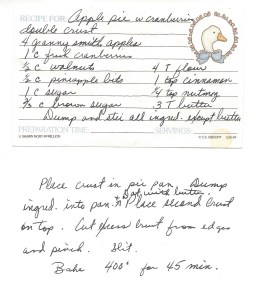 RECIPE FOR: Apple pie w cranburries
double crust
4 granny smith apples
1 c fresh cranberries
1/2 c walnuts 4 T flour
1/2 c pineapple bits 1 tsp cinnamon
1 c sugar 1/4 tsp nutmeg
1/2 c brown sugar 3 T butter
Dump and stir all ingred. except butter
PREPARATION TIME: SERVINGS:
Place crust in pie pan. Dump
ingred. into pan. ^ Dot with butter. Place second crust
on top. Cut excess crust from edges
and pinch. Slit.
Bake 400° for 45 min.